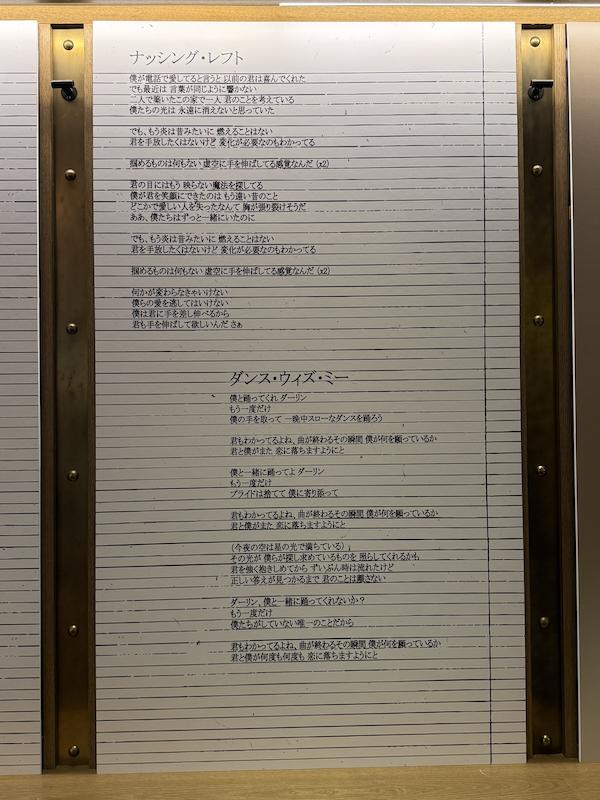 ナッシング・レフト
僕が電話で愛してると言うと 以前の君は喜んでくれた
でも最近は 言葉が同じように響かない
二人で築いたこの家で一人 君のことを考えている
僕たちの光は 永遠に消えないと思っていた
でも、もう炎は昔みたいに 燃えることはない
君を手放したくはないけど 変化が必要なのもわかってる
掴めるものは何もない 虚空に手を伸ばしてる感覚なんだ (x2)
君の目にはもう 映らない魔法を探してる
僕が君を笑顔にできたのは もう遠い昔のこと
どこかで愛しい人を失ったなんて 胸が張り裂けそうだ
ああ、僕たちはずっと一緒にいたのに
でも、もう炎は昔みたいに 燃えることはない
君を手放したくはないけど 変化が必要なのもわかってる
掴めるものは何もない 虚空に手を伸ばしてる感覚なんだ (x2)
何かが変わらなきゃいけない
僕らの愛を逃してはいけない
僕は君に手を差し伸べるから
君も手を伸ばして欲しいんだ さぁ
ダンス・ウィズ・ミー
僕と踊ってくれ ダーリン
もう一度だけ
僕の手を取って 一晩中スローなダンスを踊ろう
君もわかってるよね、曲が終わるその瞬間 僕が何を願っているか
君と僕がまた 恋に落ちますようにと
僕と一緒に踊ってよ ダーリン
もう一度だけ
プライドは捨てて 僕に寄り添って
君もわかってるよね、曲が終わるその瞬間 僕が何を願っているか
君と僕がまた 恋に落ちますようにと
(今夜の空は星の光で満ちている)
その光が 僕らが探し求めているものを 照らしてくれるかも
君を強く抱きしめてから ずいぶん時は流れたけど
正しい答えが見つかるまで 君のことは離さない
ダーリン、僕と一緒に踊ってくれないか？
もう一度だけ
僕たちがしていない唯一のことだから
君もわかってるよね、曲が終わるその瞬間 僕が何を願っているか
君と僕が何度も何度も 恋に落ちますようにと